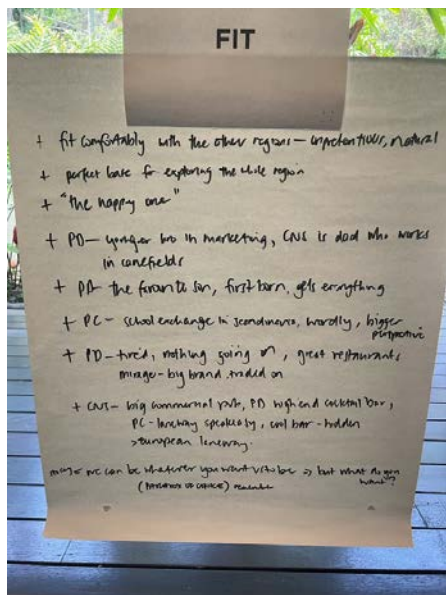 FIT
+ fit comfortably with the other regions – unpretentious, natural
+ perfect base for exploring the whole region
+ "the happy one"
+ PD – younger bro in marketing, CNS is dad who works
in canefields
+ PD – the favourite son, first born, gets everything
+ PC – school exchange in scandinavia, worldly, bigger
perspective
+ PD – tired, nothing going on, great restaurants
mirage – big brand traded on
+ CNS – big commercial pub, PD high end cocktail bar,
PC – laneway speakeasy, cool bar – hidden
> European laneway.
we can be whatever you want us to be => but what do you
want?
(PARADOX OF CHOICE)